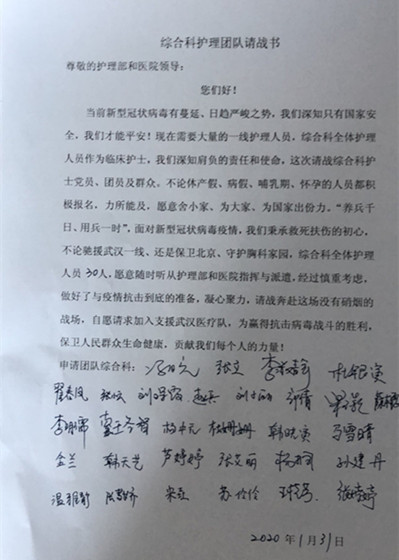 综合科护理团队请战书
尊敬的护理部和医院领导：
您们好！
当前新型冠状病毒有蔓延、日趋严峻之势，我们深知只有国家安
全，我们才能平安！现在需要大量的一线护理人员，综合科全体护理
人员作为临床护士，我们深知肩负的责任和使命，这次请战综合科护
士党员、团员及群众。不论休产假、病假、哺乳期、怀孕的人员都积
极报名，力所能及，愿意舍小家、为大家、为国家出份力。“养兵千
日、用兵一时”，面对新型冠状病毒疫情，我们秉承救死扶伤的初心，
不论驰援武汉一线、还是保卫北京、守护胸科家园，综合科全体护理
人员30人，愿意随时听从护理部和医院指挥与派遣，经过慎重考虑，
做好了与疫情抗击到底的准备，凝心聚力，请战奔赴这场没有硝烟的
战场，自愿请求加入支援武汉医疗队，为赢得抗击病毒战斗的胜利，
保卫人民群众生命健康，贡献我们每个人的力量！
申请团队综合科： 张立 杜银宾
翟春凤 刘士丽
杜姗姗 韩晓宾 马雪晴
金兰 韩天艺 芦婷婷 张文丽 孙建丹
2020年1月31日